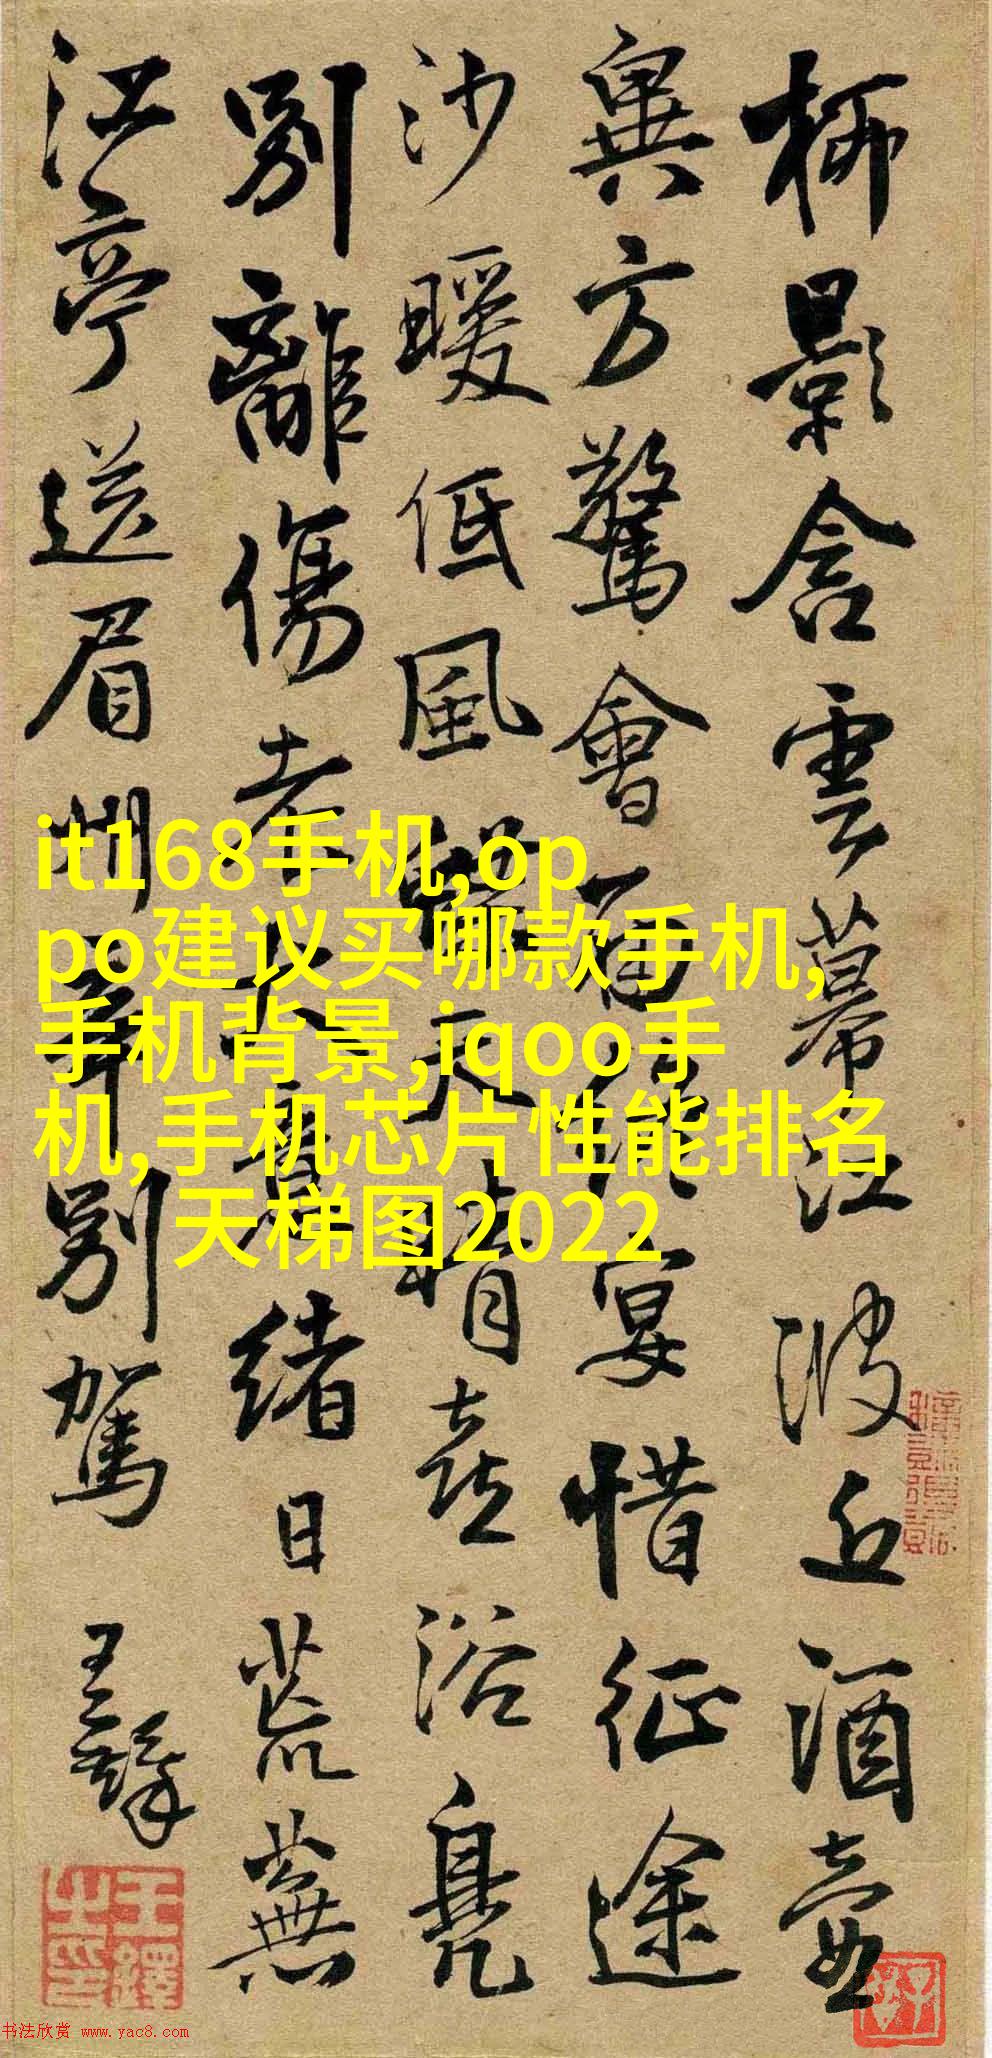 柳影含雲幕江波近酒壺
異方驚會面終宴惜征途
沙暖低風蝶天晴喜浴鳧
別離傷老大意緒日荒蕪
江亭送眉州辛別駕 王鐸
王鐸之印
it168手机,op
po建议买哪款手机,
手机背景,iqoo手
机,手机芯片性能排名
天梯图2022
书法欣赏 www.yac8.com